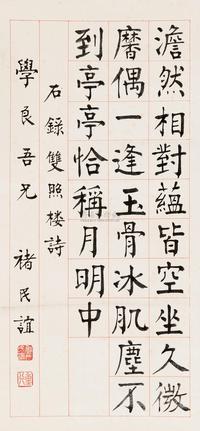 澹然相對蘊皆空坐久微
麐偶一逢玉骨冰肌塵不
到亭亭恰稱月明中
石錄雙照楼詩
學良吾兄 褚民誼